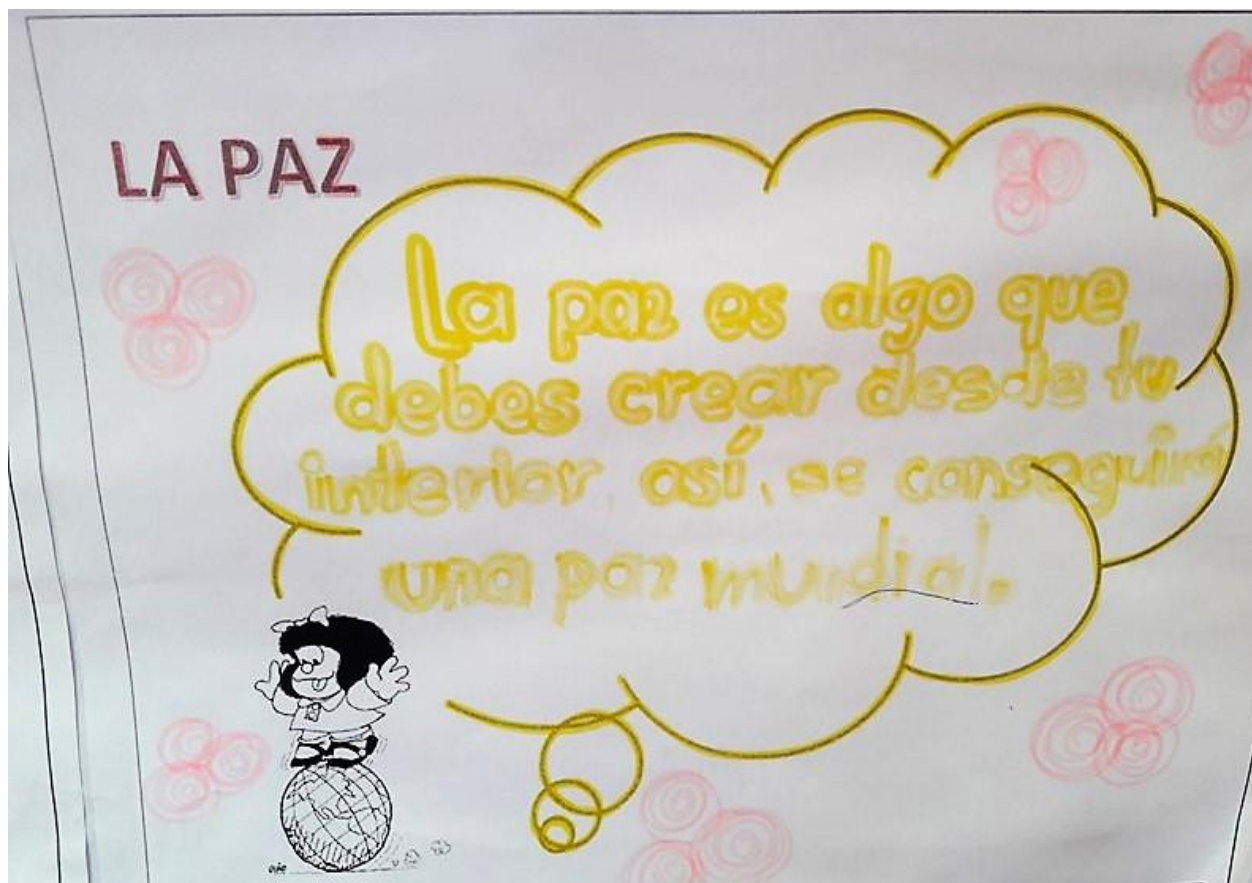 LA PAZ
La paz es algo que
debes crear desde tu
interior, así, se conseguirá
una paz mundial.